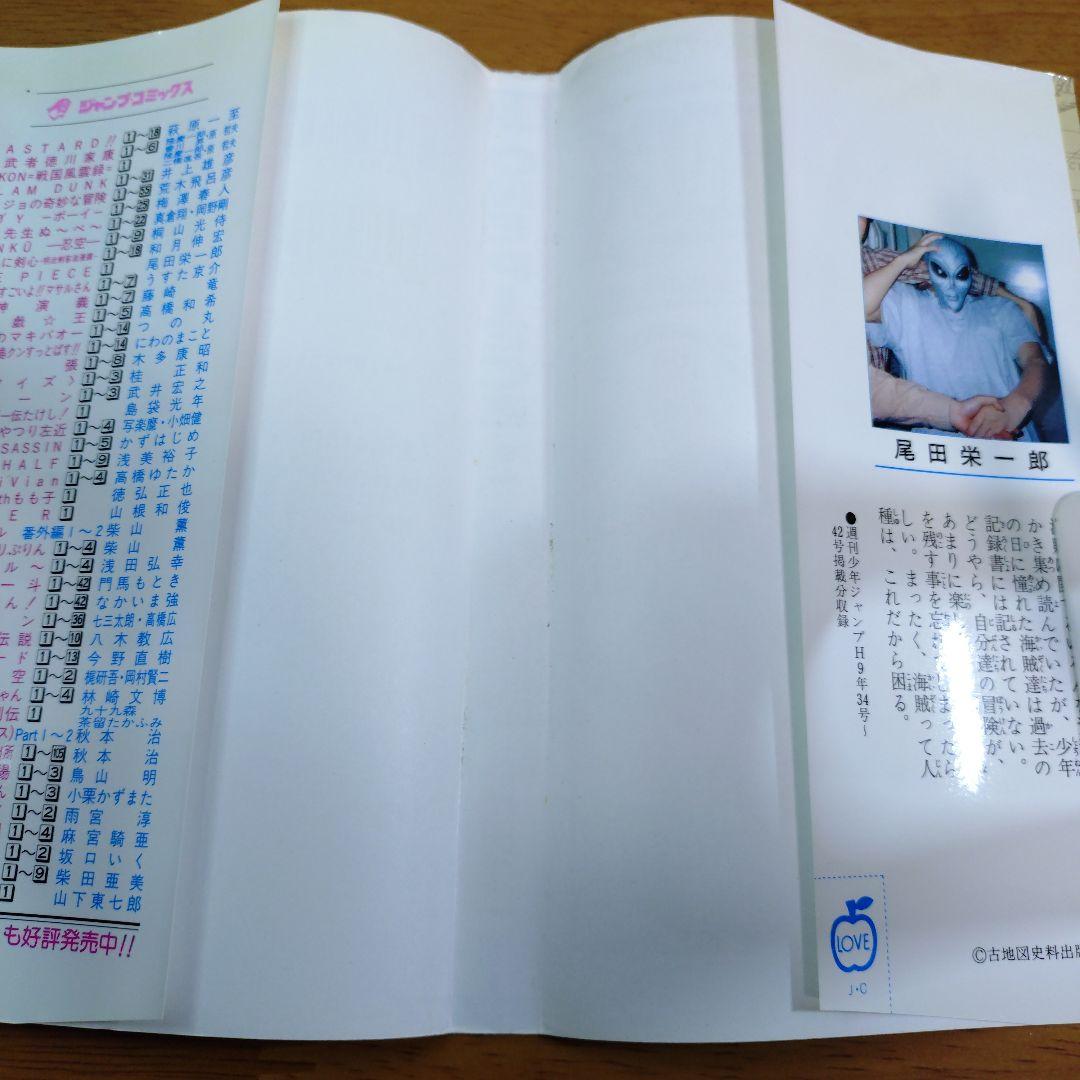 ジャンプ・コミックス
ASTARD!! 1〜18 萩原一至
武者徳川家康 1〜6
KON=戦国風雲録= 1
LAM DUNK 1〜31 井上雄彦
ジョの奇妙な冒険 1〜55 荒木飛呂彦
Y ーボーイー 1〜25 梅澤春人
先生ぬ〜べ〜 1〜22 真倉翔・岡野剛
NKŪ ―忍空― 1〜9 桐山光侍
に剣心 1〜18 和月伸宏
E PIECE 1 尾田栄一郎
すごいよ!!マサルさん 1〜7 うすた京介
神演義 1〜7 藤崎竜
戯☆王 1〜5 高橋和希
のマキバオー 1〜14 つの丸
クンすっとばす!! 1〜14 にわのまこと
張 1〜8 木多康昭
イズ〉 1〜3 桂正和
ーン 1〜3 武井宏之
伝たけし! 1 島袋光年
やつり左近 1〜4 写楽麿・小畑健
SASSIN 1〜5 かずはじめ
HALF 1〜9 浅美裕子
i Vian 1〜4 高橋ゆたか
thもも子 1 徳弘正也
ER 1 山根和俊
ル 番外編1〜2 柴山薫
りぷりん 1〜4 柴山薫
ル〜 1〜4 浅田弘幸
一斗 1〜42 門馬もとき
ん! 1〜42 なかいま強
ン 1〜36 七三太朗・高橋広
伝説 1〜10 八木教広
ード 1〜13 今野直樹
空 1〜2 梶研吾・岡村賢二
ちゃん 1〜4 林崎文博
列伝 1 九十九森
茶留たかふみ
ス)Part1〜2 秋本治
所 1〜105 秋本治
1〜3 鳥山明
ん 1〜3 小栗かずまた
1〜2 雨宮淳
1〜4 麻宮騎亜
1〜2 坂口いく
1〜9 柴田亜美
1 山下東七郎
も好評発売中!!
尾田栄一郎
少年
かき集め読んでいたが、
の日に憧れた海賊達は過去の
記録書には記されていない。
どうやら、自分達の冒険が、
あまりに楽
を残す事を忘
しい。まったく、海賊って人
種は、これだから困る。
●週刊少年ジャンプH9年34号〜
42号掲載分収録
LOVE
J・C
©古地図史料出版